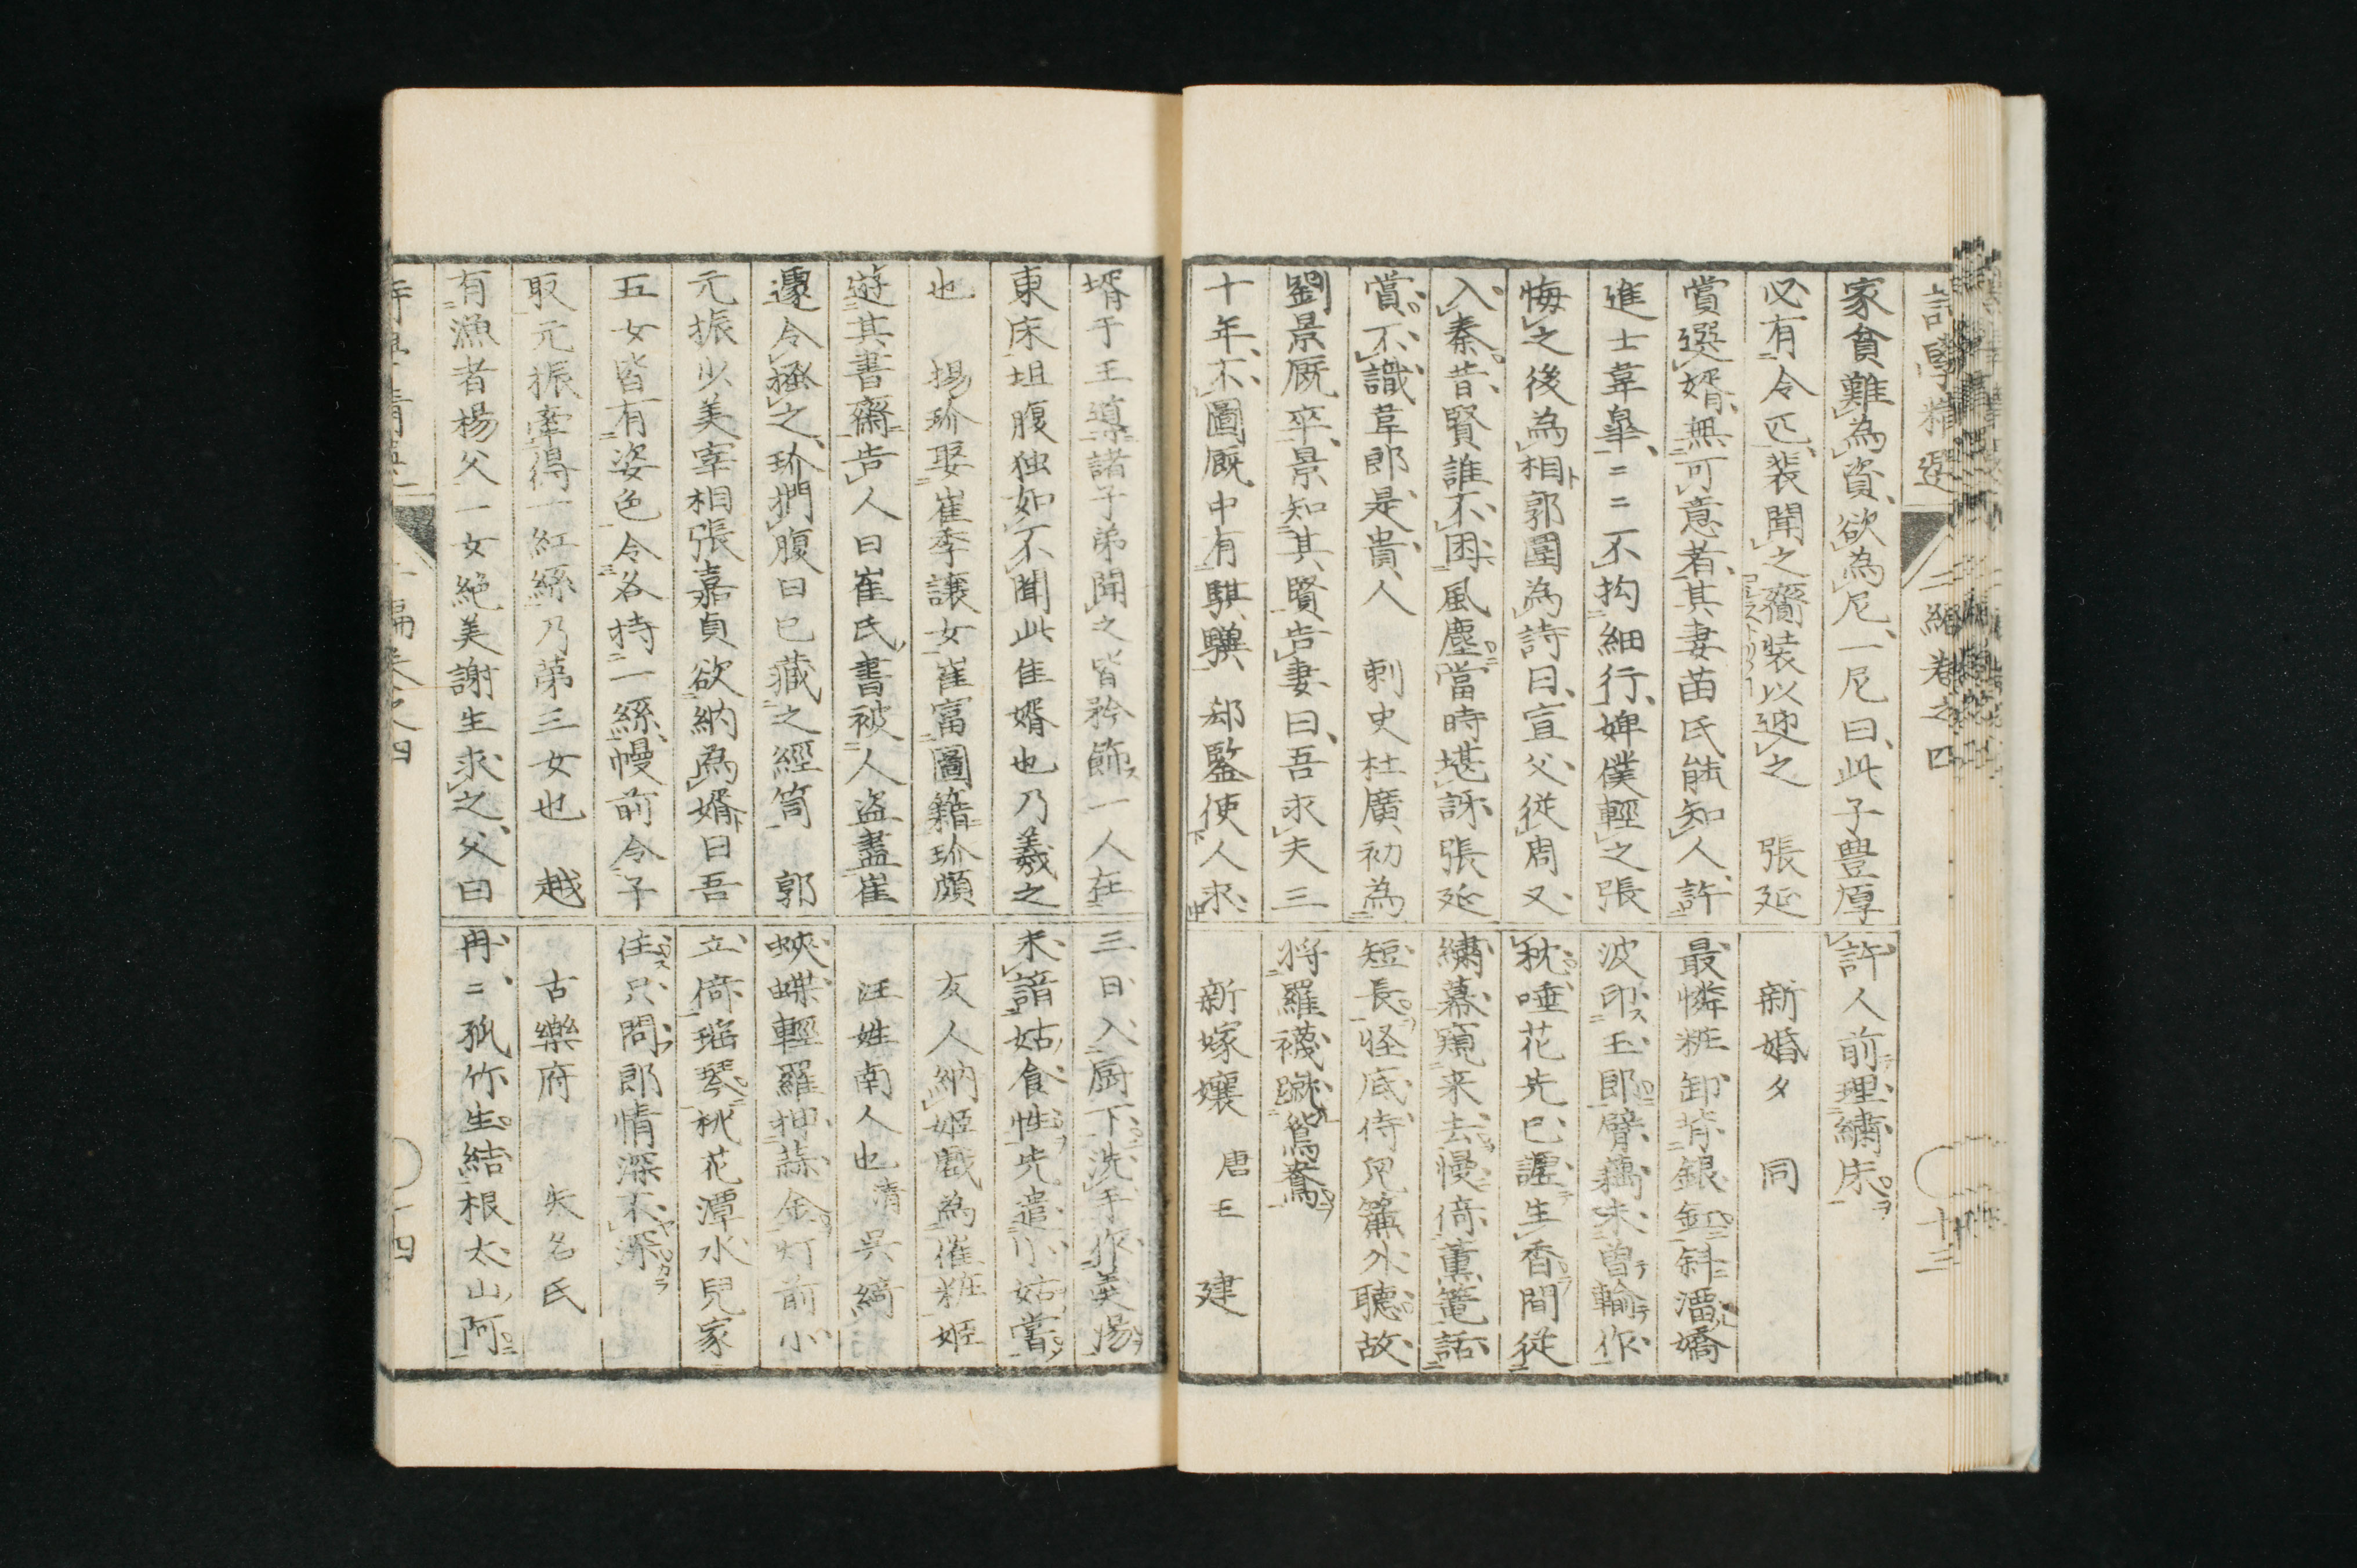 詩學精選 二編卷之四 十三
家貧難為資、欲為尼、一尼曰、此子豊厚
必有令匹、裴聞之齎装以迎之　張延
賞選婿、無可意者、其妻苗氏能知人、許
進士韋皐、ニニ不拘細行、婢僕輕之張
悔之後為相郭圍為詩曰、宣父従周又
入秦昔賢誰不困風塵當時堪訝張延
賞不識韋郎是貴人　刺史杜廣初為
劉景厩卒、景知其賢告妻曰、吾求夫三
十年、不圖厩中有騏驥　郄監使人求
許人前理繍床
新婚夕　同
最憐粧卸背銀釭斜溜嬌
波印玉郎臂藕未曾輸作
枕唾花先已謔生香間従
繍幕窺来去慢倚薫篭話
短長怪底侍兒簾外聴故
将羅襪蹴鴛鴦
新嫁嬢　唐王　建
婿于王導諸子弟聞之皆矜飾一人在
東床坦腹独如不聞此佳婿也乃羲之
也　揚玠娶崔季譲女崔富圖籍玠頗
遊其書齋告人曰崔氏書被人盗盡崔
遽令𢮞之玠捫腹曰已蔵之經笥　郭
元振少美宰相張嘉貞欲納為婿曰吾
五女皆有姿色令各持一絲幔前令子
取元振牽得一紅絲乃第三女也　越
有漁者楊父一女絶美謝生求之父曰
三日入厨下洗手作羹湯
未諳姑食性先遣小姑嘗
友人納姬戯為催粧姬
汪姓南人也　清　呉綺
蛺蝶輕羅抽蒜金灯前小
立倚瑤琴桃花潭水兒家
住只問郎情深不深
古樂府　失名氏
冉ニ孤竹生結根太山阿
二編卷之四 十四